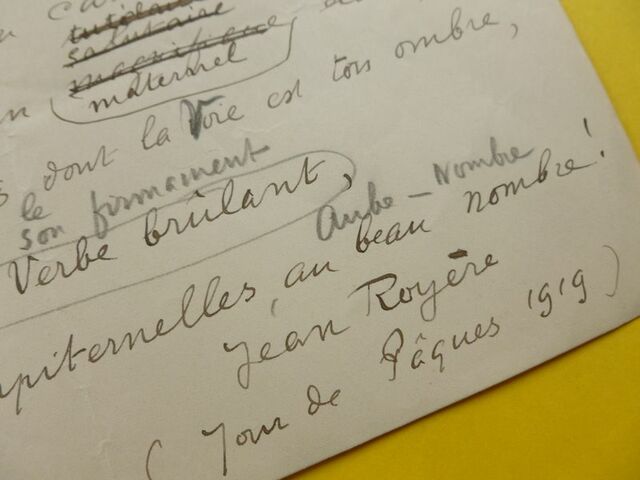 tutélaire
salutaire
magnifique
maternel
dont la Voie est tons ombre,
le
son firmament
Verbe brûlant,
Aube - Nombre
piternelles, au beau nombre!
Jean Royère
( Jour de Pâques 1919 )